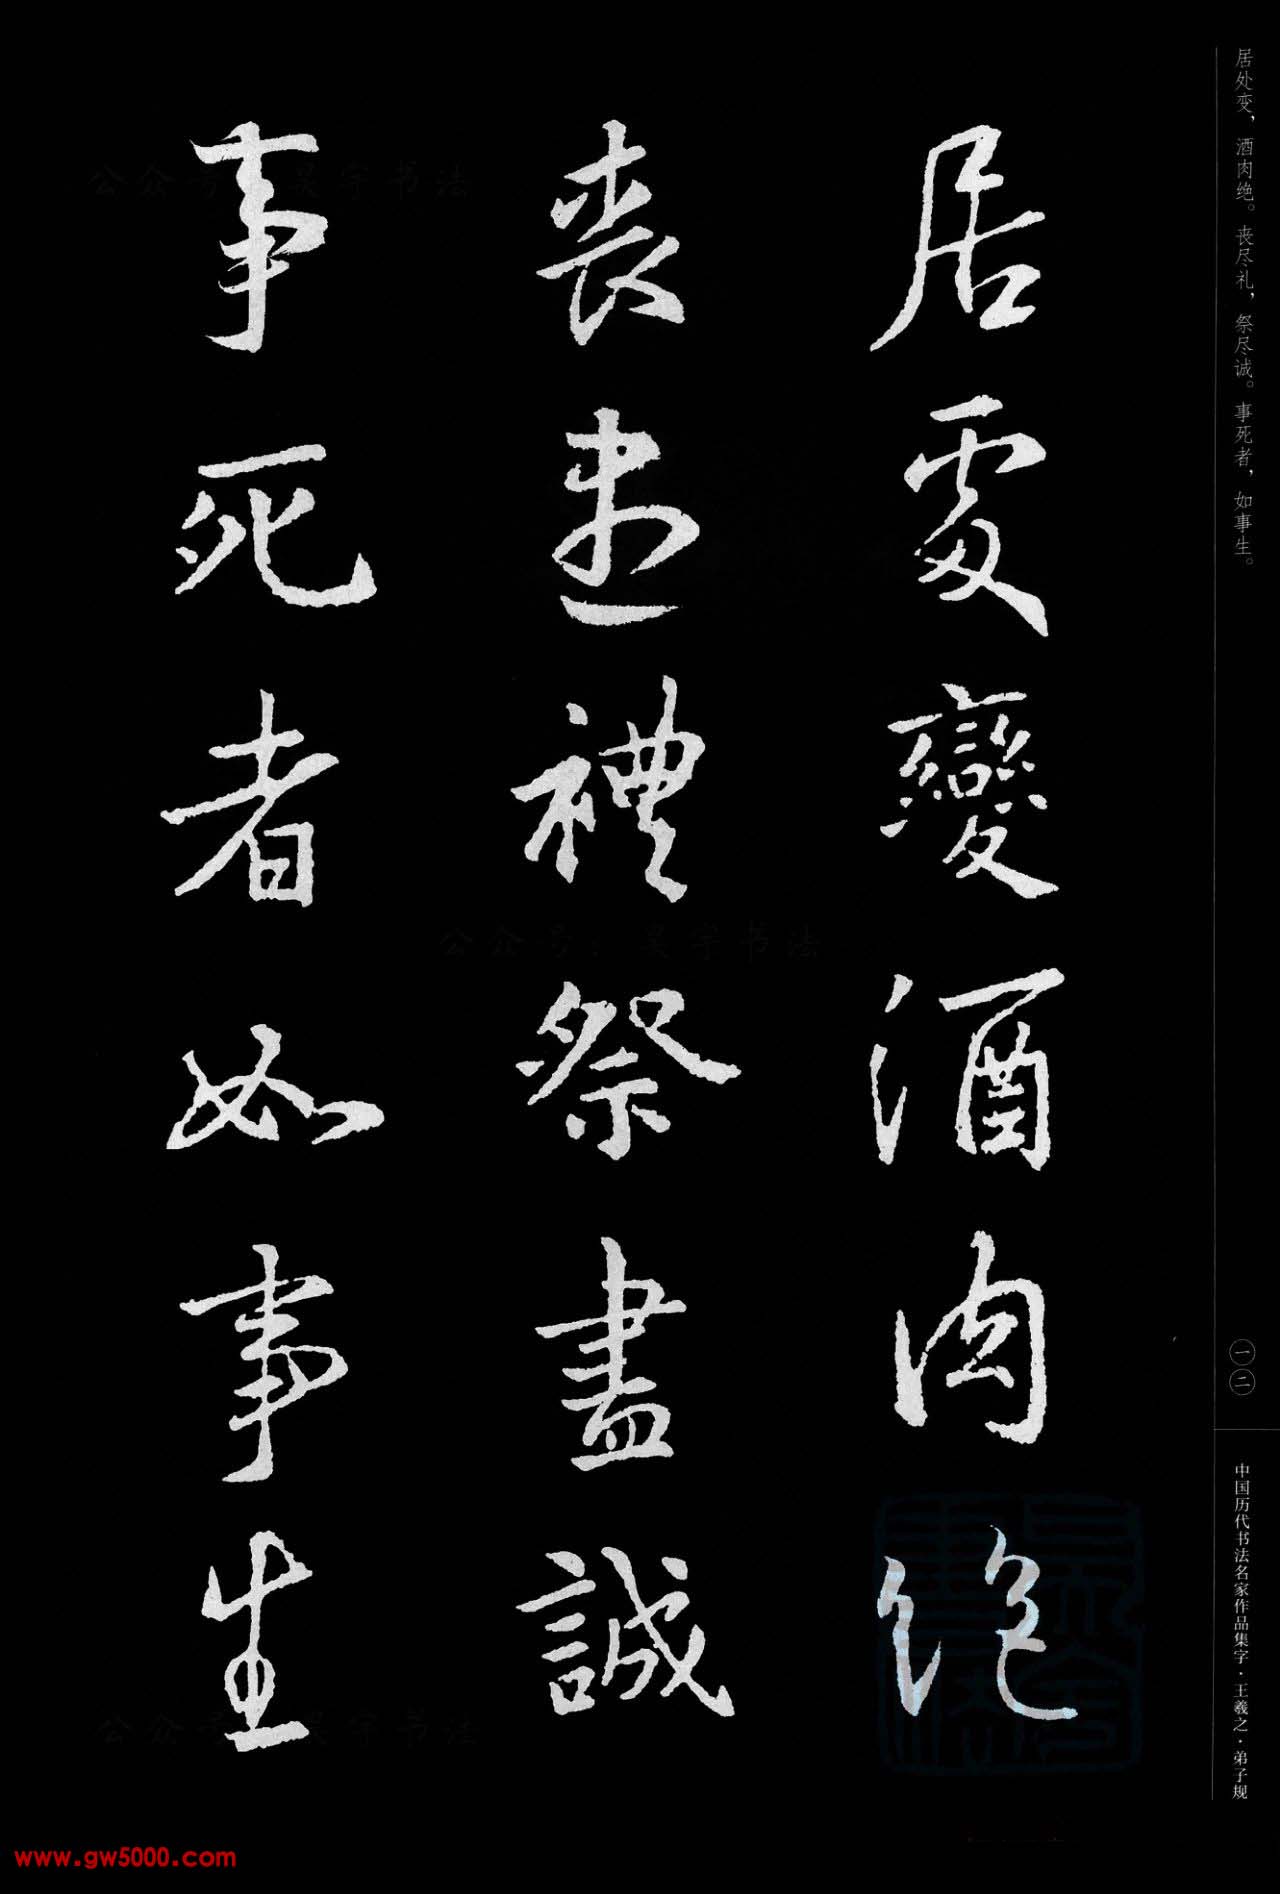 居处变，酒肉绝。丧尽礼，祭尽诚。事死者，如事生。
一二
中国历代书法名家作品集字·王羲之·弟子规
居處變酒肉絕
喪盡禮祭盡誠
事死者如事生
公众号：昊宇书法
公众号：昊宇书法
公众号：昊宇书法
www.gw5000.com